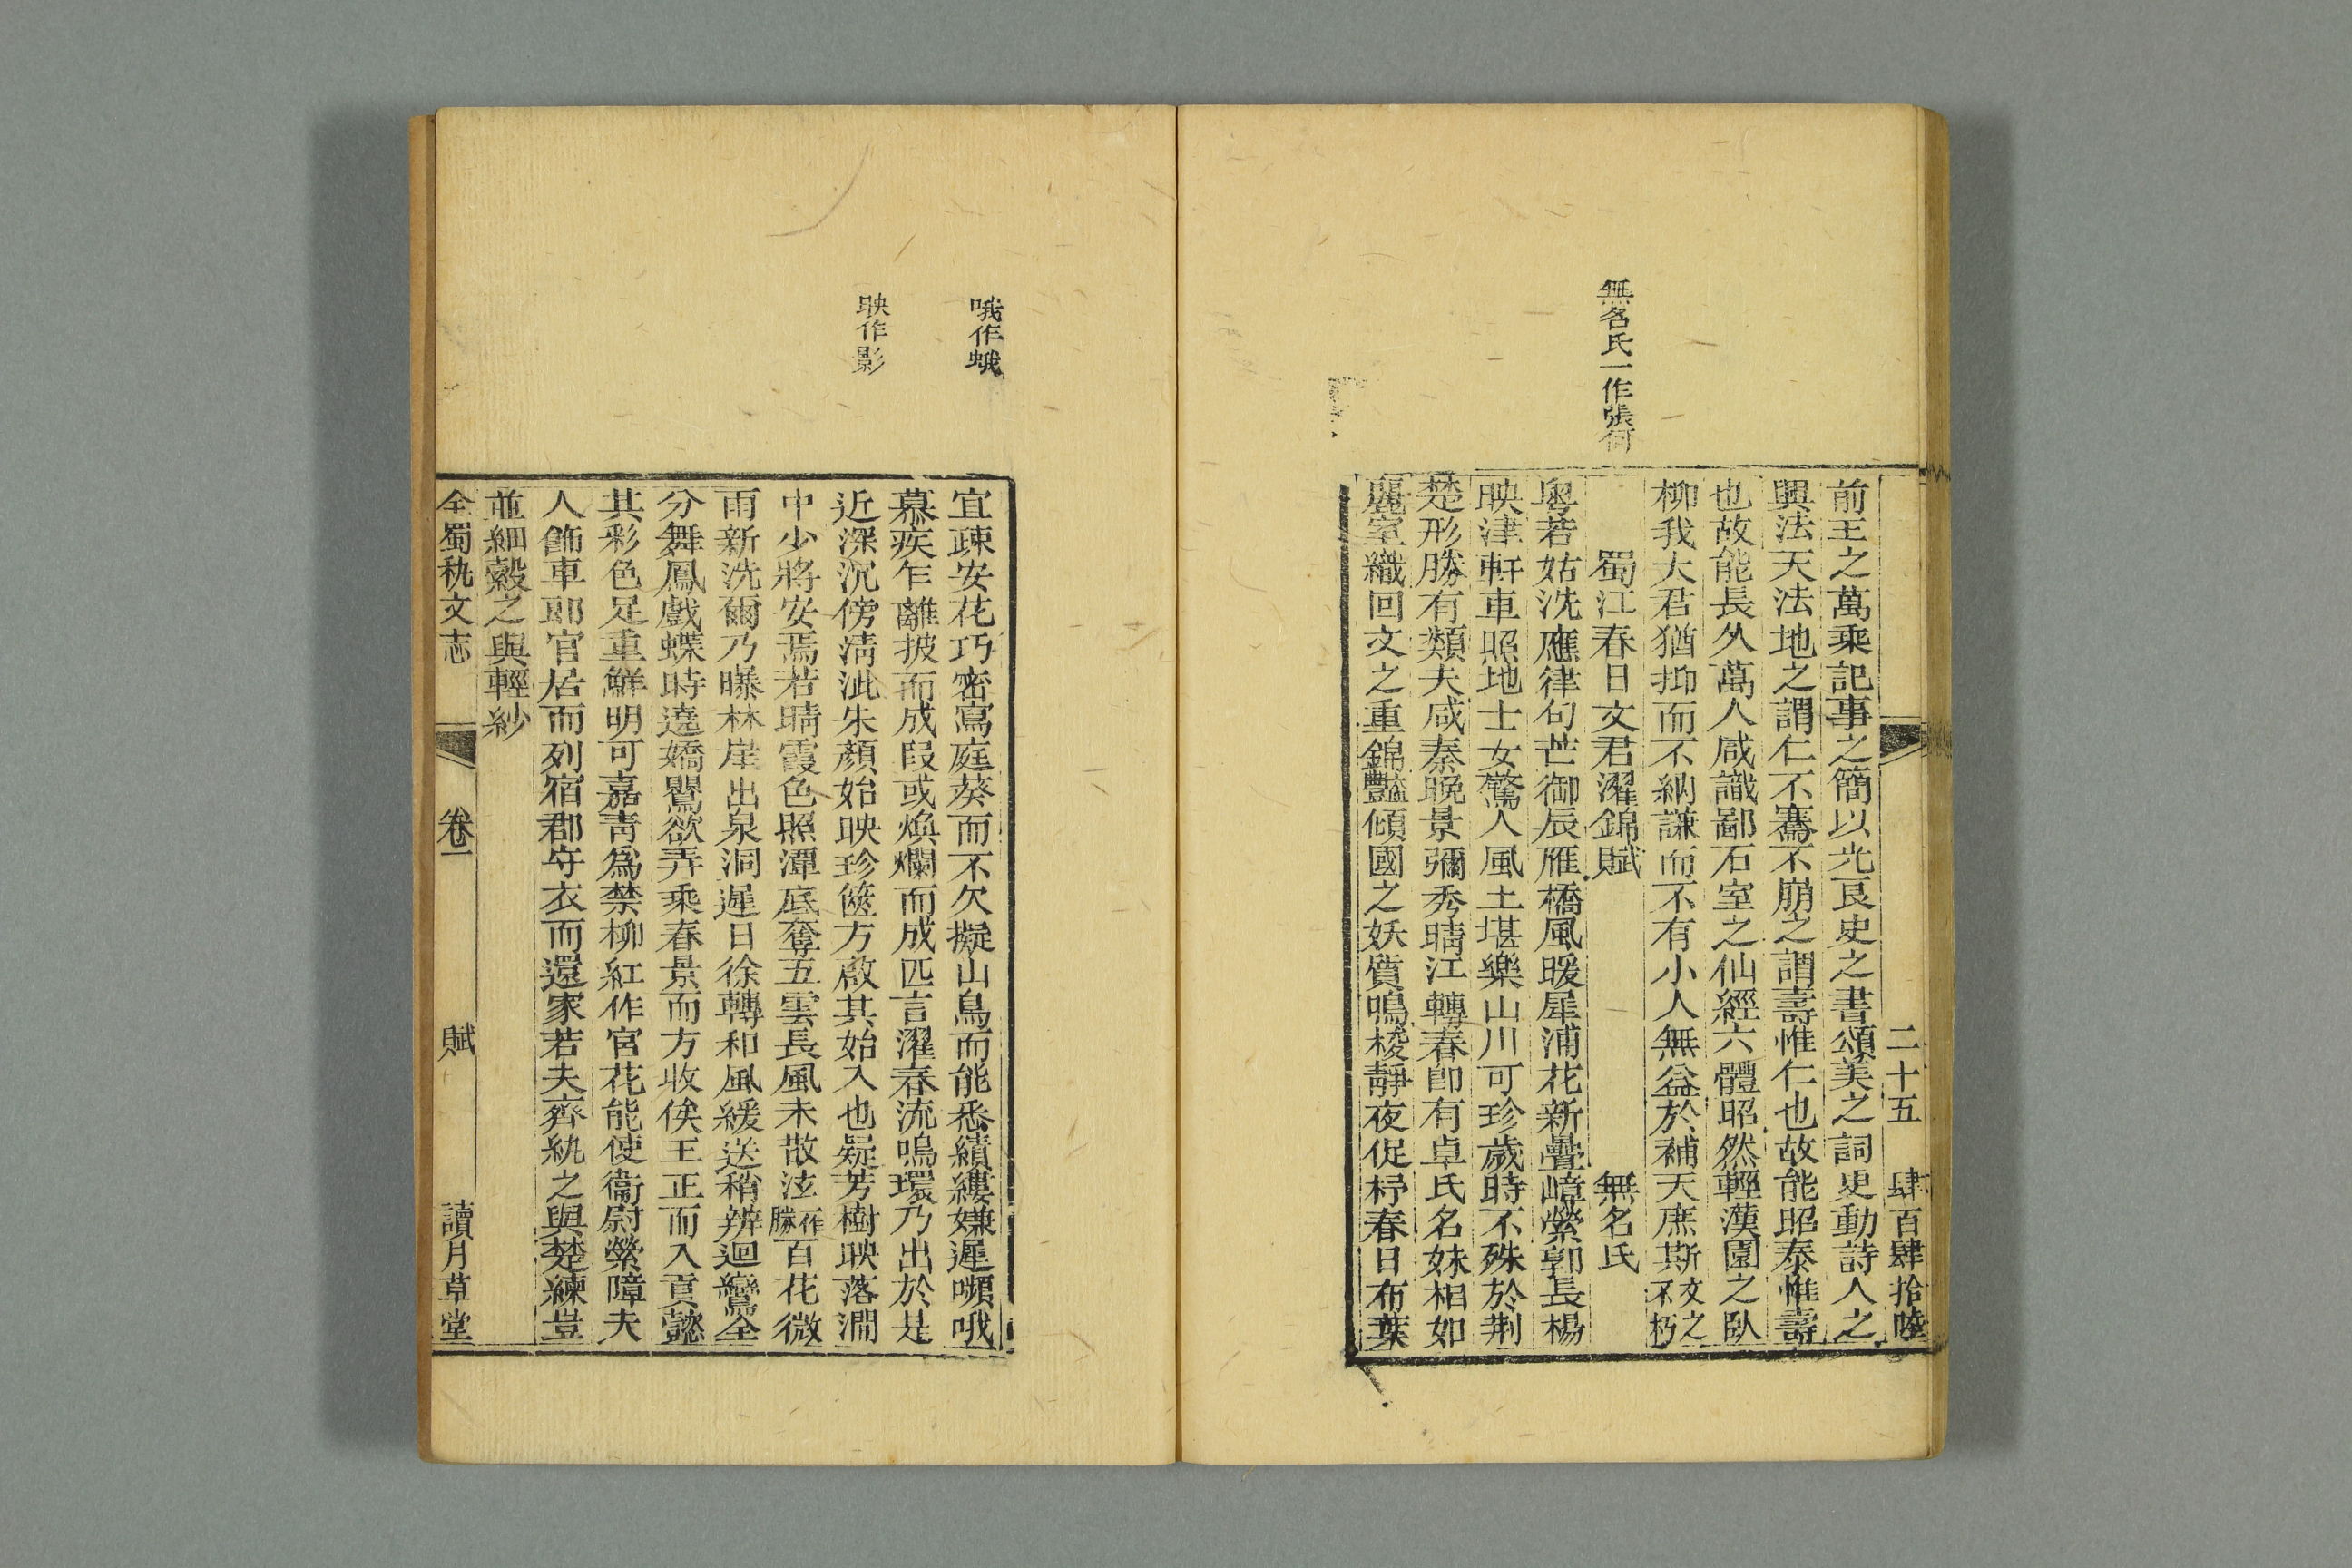 二十五 肆百肆拾陸
前王之萬乘記事之簡以光良史之書頌美之詞更動詩人之
興法天法地之謂仁不騫不崩之謂壽惟仁也故能昭泰惟壽
也故能長久萬人咸識鄙石室之仙經六體昭然輕漢園之臥
柳我大君猶抑而不納謙而不有小人無益於補天庶斯文之不朽
無名氏一作張何
蜀江春日文君濯錦賦 無名氏
粵若姑洗應律句芒御辰雁橋風暖犀浦花新疊嶂縈郭長楊
映津軒車照地士女驚人風土堪樂山川可珍歲時不殊於荆
楚形勝有類夫咸秦晚景彌秀晴江轉春卽有卓氏名姝相如
麗室織回文之重錦豔傾國之妖質鳴梭靜夜促杼春日布葉
哦作蛾
宜疎安花巧密寫庭葵而不欠擬山鳥而能悉績縷嫌遲嚬哦
慕疾乍離披而成段或煥爛而成匹言濯春流鳴環乃出於是
映作影
近深沉傍淸泚朱顏始映珍篋方啟其始入也疑芳樹映落澗
中少將安焉若晴霞色照潭底奪五雲長風未散泫作勝百花微
雨新洗爾乃曝林崖出泉洞遲日徐轉和風緩送稍辨迴鸞全
分舞鳳戲蝶時遶嬌鸎欲弄乘春景而方收俟王正而入貢懿
其彩色足重鮮明可嘉靑爲禁柳紅作宮花能使衞尉縈障夫
人飾車郎官居而列宿郡守衣而還家若夫齊紈之與楚練豈
並細縠之與輕紗
全蜀秇文志 卷一 賦 讀月草堂